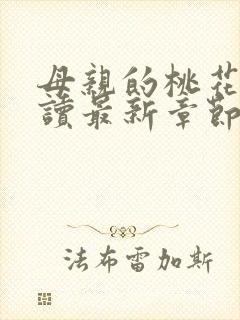 母親的桃花
讀最新章節
法布雷加斯